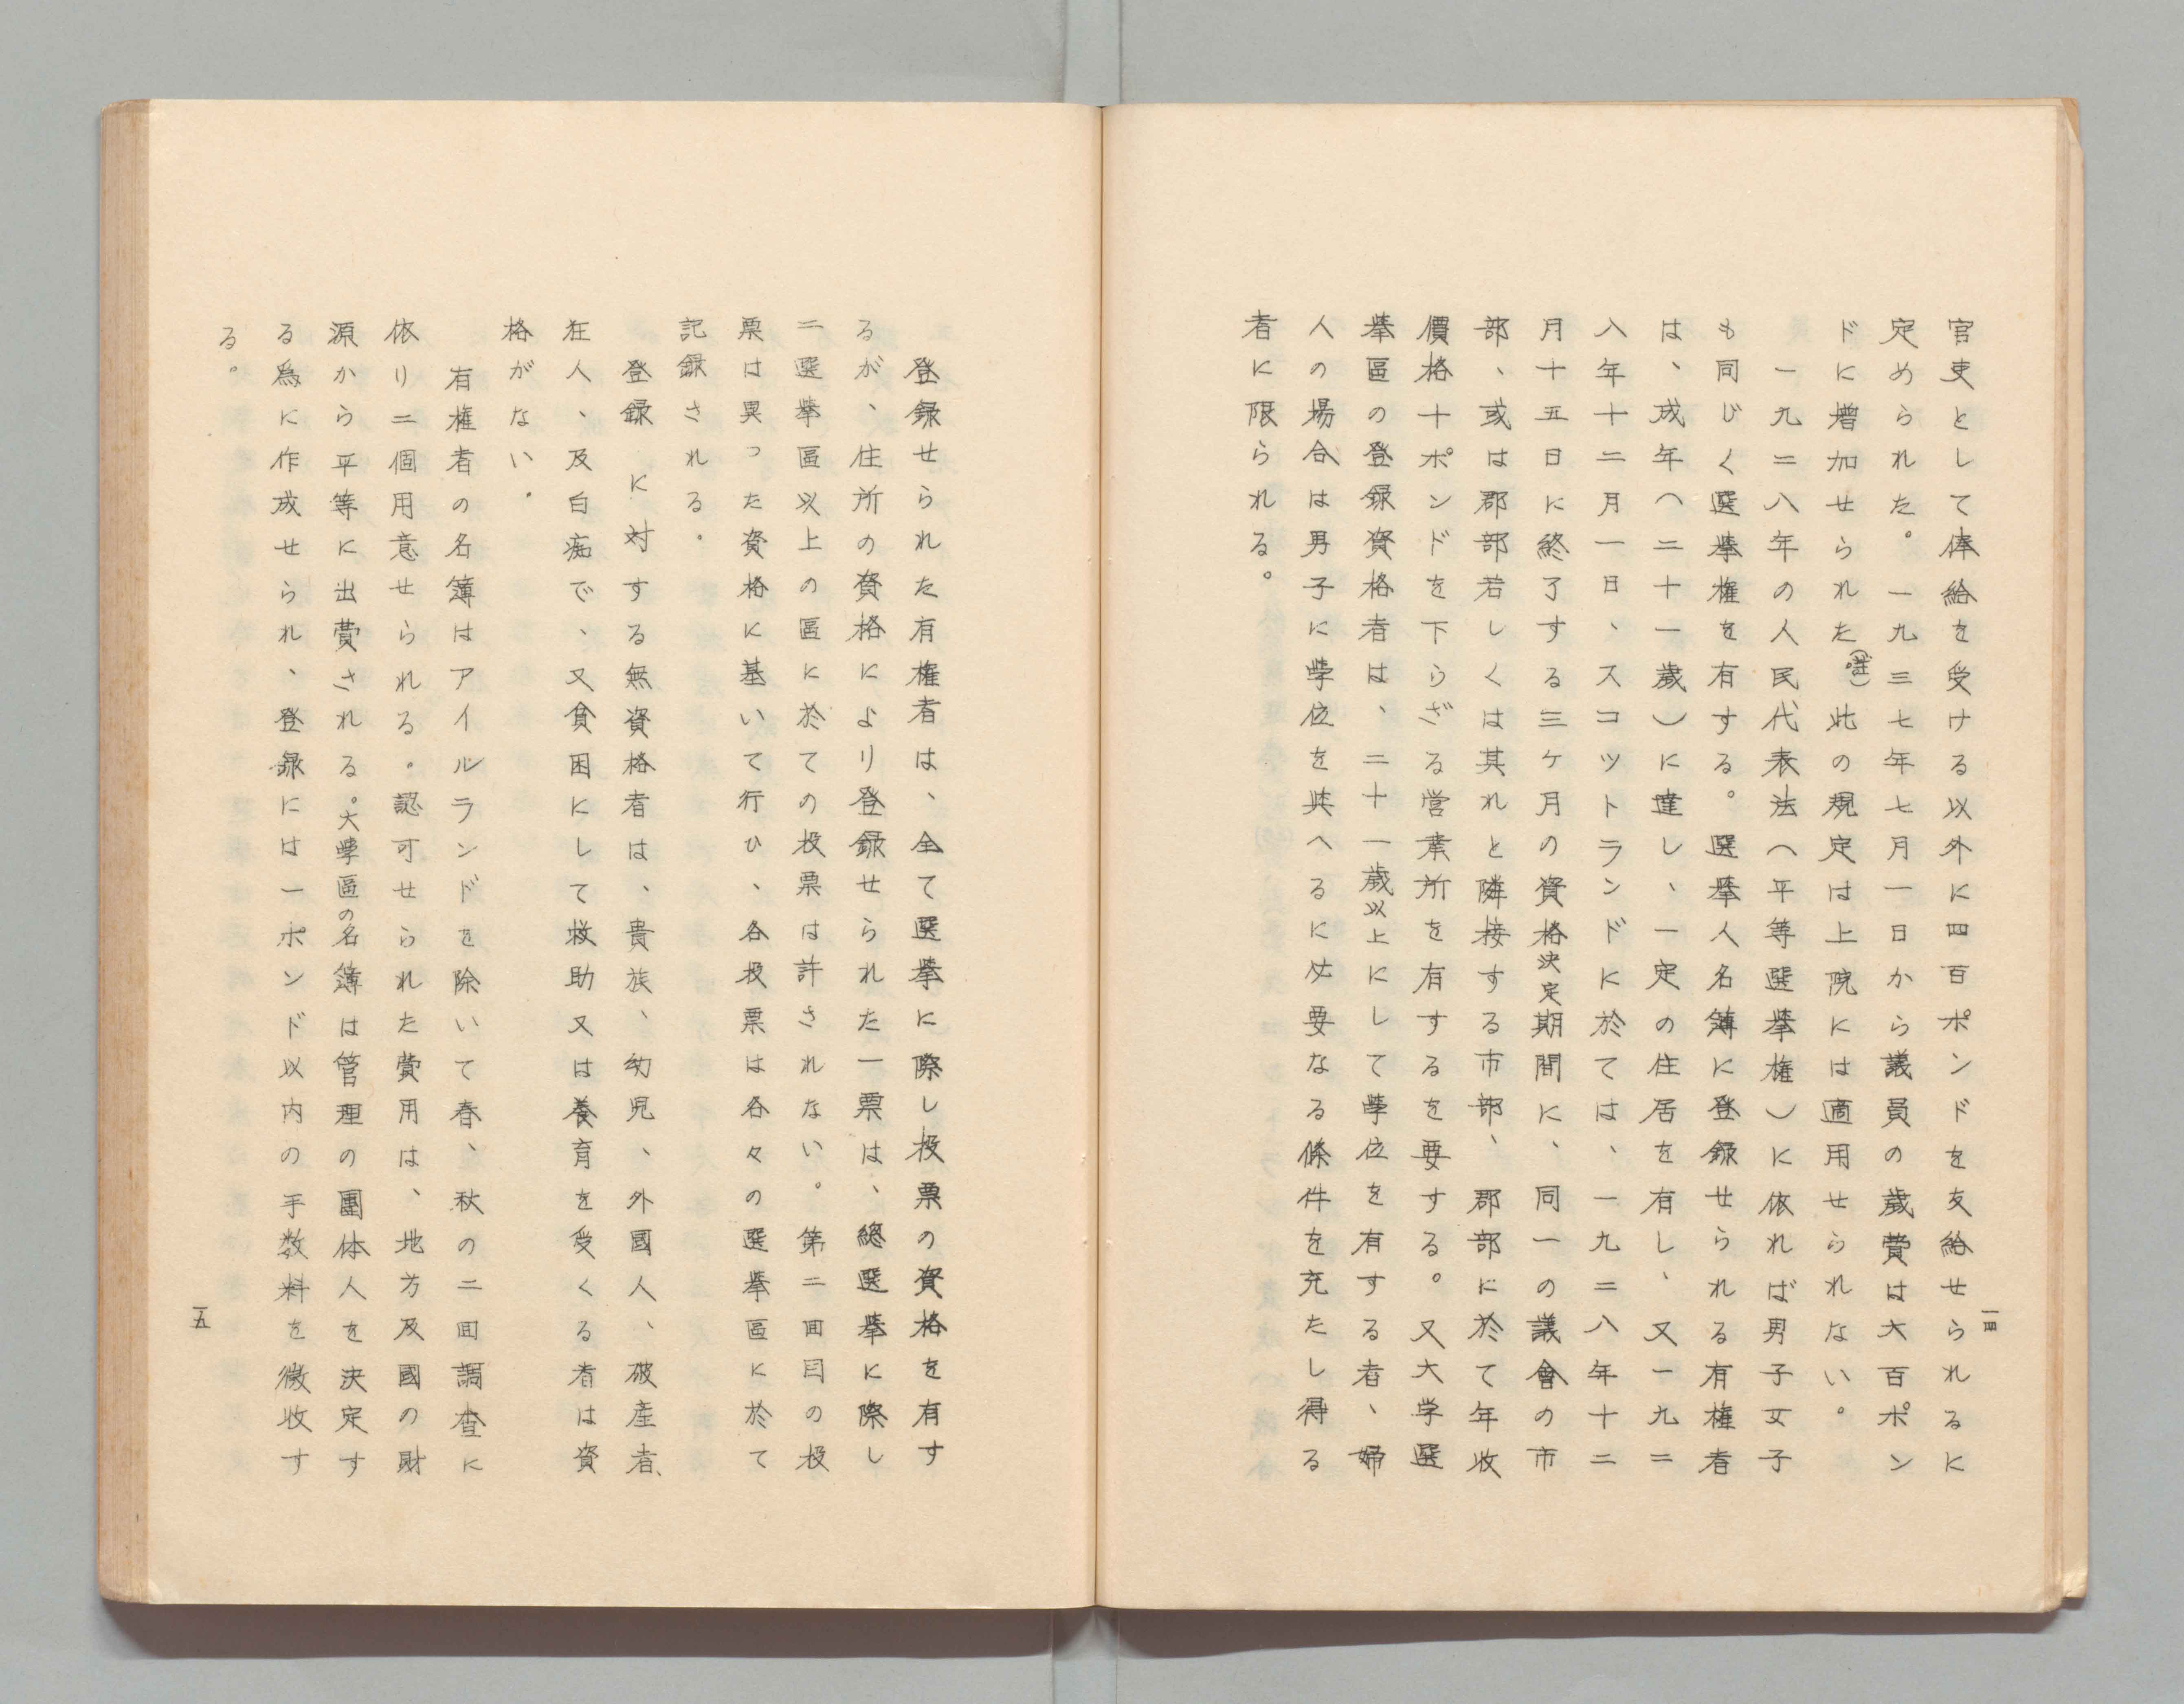 官吏として俸給を受ける以外に四百ポンドを支給せられるに
定められた。一九三七年七月一日から議員の歳費は大百ポン
ドに増加せられた。(註)此の規定は上院には適用せられない。
一九二八年の人民代表法(平等選挙権)に依れば男子女子
も同じく選挙権を有する。選挙人名簿に登録せられる有権者
は、成年(二十一歳)に達し、一定の住居を有し、又一九二
八年十二月一日、スコットランドに於ては、一九二八年十二
月十五日に終了する三ケ月の資格決定期間に、同一の議會の市
部、或は郡部若しくは其れと隣接する市部、郡部に於て年收
價格十ポンドを下らざる営業所を有するを要する。又大学選
挙區の登録資格者は、二十一歳以上にして學位を有する者、婦
人の場合は男子に學位を與へるに必要なる條件を充たし得る
者に限られる。
一四
登録せられた有権者は、全て選挙に際し投票の資格を有す
るが、住所の資格により登録せられた一票は、總選挙に際し
二選挙區以上の區に於ての投票は許されない。第二回目の投
票は異った資格に基いて行ひ、各投票は各々の選挙區に於て
記録される。
登録に対する無資格者は、貴族、幼児、外國人、破産者、
狂人、及白痴で、又貧困にして救助又は養育を受くる者は資
格がない。
有権者の名簿はアイルランドを除いて春、秋の二回調査に
依り二個用意せられる。認可せられた費用は、地方及國の財
源から平等に出費される。大學區の名簿は管理の團体人を決定す
る為に作成せられ、登録には一ポンド以内の手数料を徴收す
る。
一五